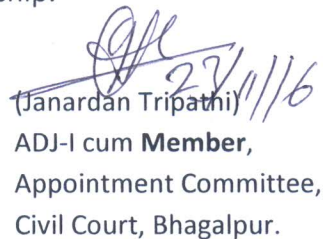 23/11/16
(Janardan Tripathi)
ADJ-I cum Member,
Appointment Committee,
Civil Court, Bhagalpur.